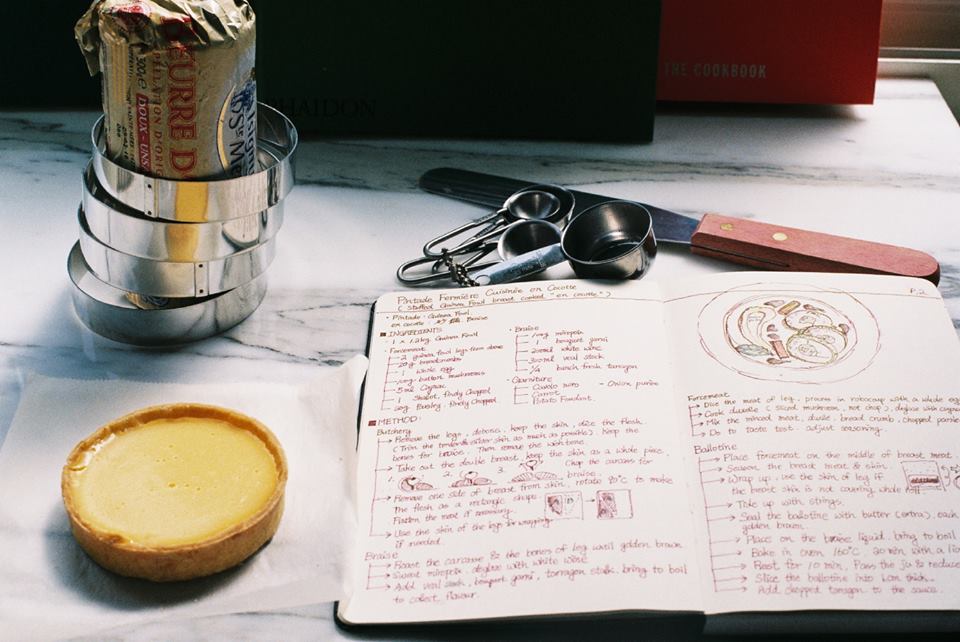 BEURRE D
PELLATION D'ORIG
DOUX - UNS
PHAIDON
THE COOKBOOK
Pintade Fermière Cuisinée en Cocotte
(Stuffed Guinea Fowl breast cooked "en cocotte")
• Pintade - Guinea Fowl
en cocotte - Braise
INGREDIENTS
• 1 x 1.2kg Guinea Fowl
• Forcemeat
2 guinea fowl legs from above
20g breadcrumbs
1 whole egg
100g button mushrooms
5ml Cognac
1 Shallot, finely chopped
20g Parsley, finely chopped
• Braise
100g mirepoix
1 bouquet garni
200ml white wine
300ml veal stock
1/4 bunch fresh tarragon
• Garniture
Cavolo nero - Onion purée
Carrot
Potato Fondant
METHOD:
Butchery
Remove the legs, debone, keep the skin, dice the flesh.
(Trim the skin as much as possible). Keep the
bones for braise. Then remove the wish bone.
Take out the double breast, keep the skin as a whole piece.
1. 2. 3. Chop the carcass for
braise.
Remove one side of breast from skin, rotate 90°c to make
the flesh as a rectangle shape.
Flatten the meat if necessary.
Use the skin of the legs for wrapping
if needed.
Braise
Roast the carcasse & the bones of leg until golden brown
Sweat mirepoix, deglase with white wine
Add veal stock, bouquet garni, tarragon stalk. bring to boil
to collect flavour.
P.2
Forcemeat
Dice the meat of leg, process in robocoup with a whole egg
Cook duxelle (sliced mushroom, not chop), deglase with cognac
Mix the minced meat, duxelle, bread crumb, chopped parsley
Do to taste test. adjust seasoning.
Ballotine
Place forcemeat on the middle of breast meat
Season the breast meat & skin.
Wrap up, use the skin of leg if
the breast skin is not covering whole
Tide up with strings.
Seal the ballotine with butter (extra). each
golden brown.
Place on the braise liquid. bring to boil
Bake in oven 160°C, 20 min with a lid
Rest for 10 min, Pass the jus & reduce
Slice the ballotine into 1cm thick.
Add chopped tarragon to the sauce.